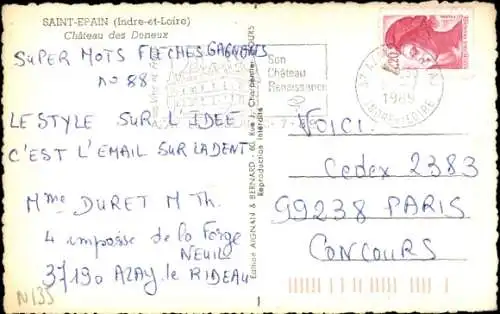 SAINT-EPAIN (Indre-et-Loire)
Château des Doneux
SUPER MOTS FLECHES GAGNANTS
No 88
LE STYLE SUR L'IDEE
C'EST L'EMAIL SUR LA DENT
Mme DURET M Th.
4 impasse de la Forge
NEUIL
37190 AZAY. le RIDEAU
N135
Editions AIGNAN & BERNARD - 60, Rue J. Charpentier, TOURS
Reproduction interdite
Son
Château
Renaissance
2,20
1989
INDRE-ET-LOIRE
VOICI.
Cedex 2383
99238 PARIS
CONCOURS